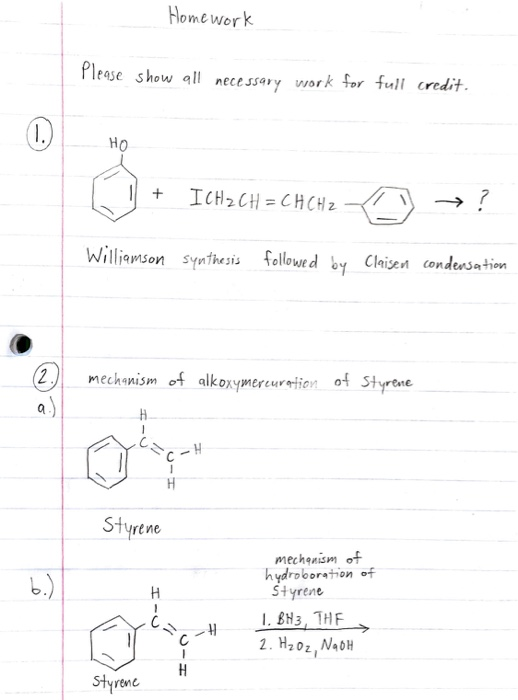 Homework
Please show all necessary work for full credit.
1.
HO
+ ICH2CH = CHCH2 → ?
Williamson synthesis followed by Claisen condensation
2.
mechanism of alkoxymercuration of Styrene
a.)
H
C
C - H
H
Styrene
mechanism of
hydroboration of
Styrene
b.)
H
C
C - H
H
1. BH3, THF
2. H2O2, NaOH
Styrene